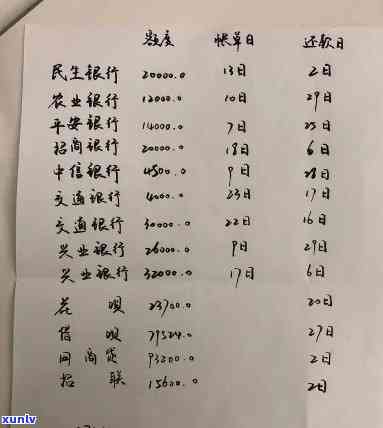 额度 帐单日 还款日
民生银行 20000.0 13日 2日
农业银行 12000.0 10日 29日
平安银行 14000.0 7日 25日
招商银行 20000.0 18日 6日
中信银行 4500.0 9日 28日
交通银行 4000.0 23日 17日
交通银行 30000.0 22日 16日
兴业银行 26000.0 9日 29日
兴业银行 32000.0 17日 6日
花呗 23700.0 20日
借呗 79524.0 27日
网商贷 93200.0 2日
招联 15600.0 2日
xunlv